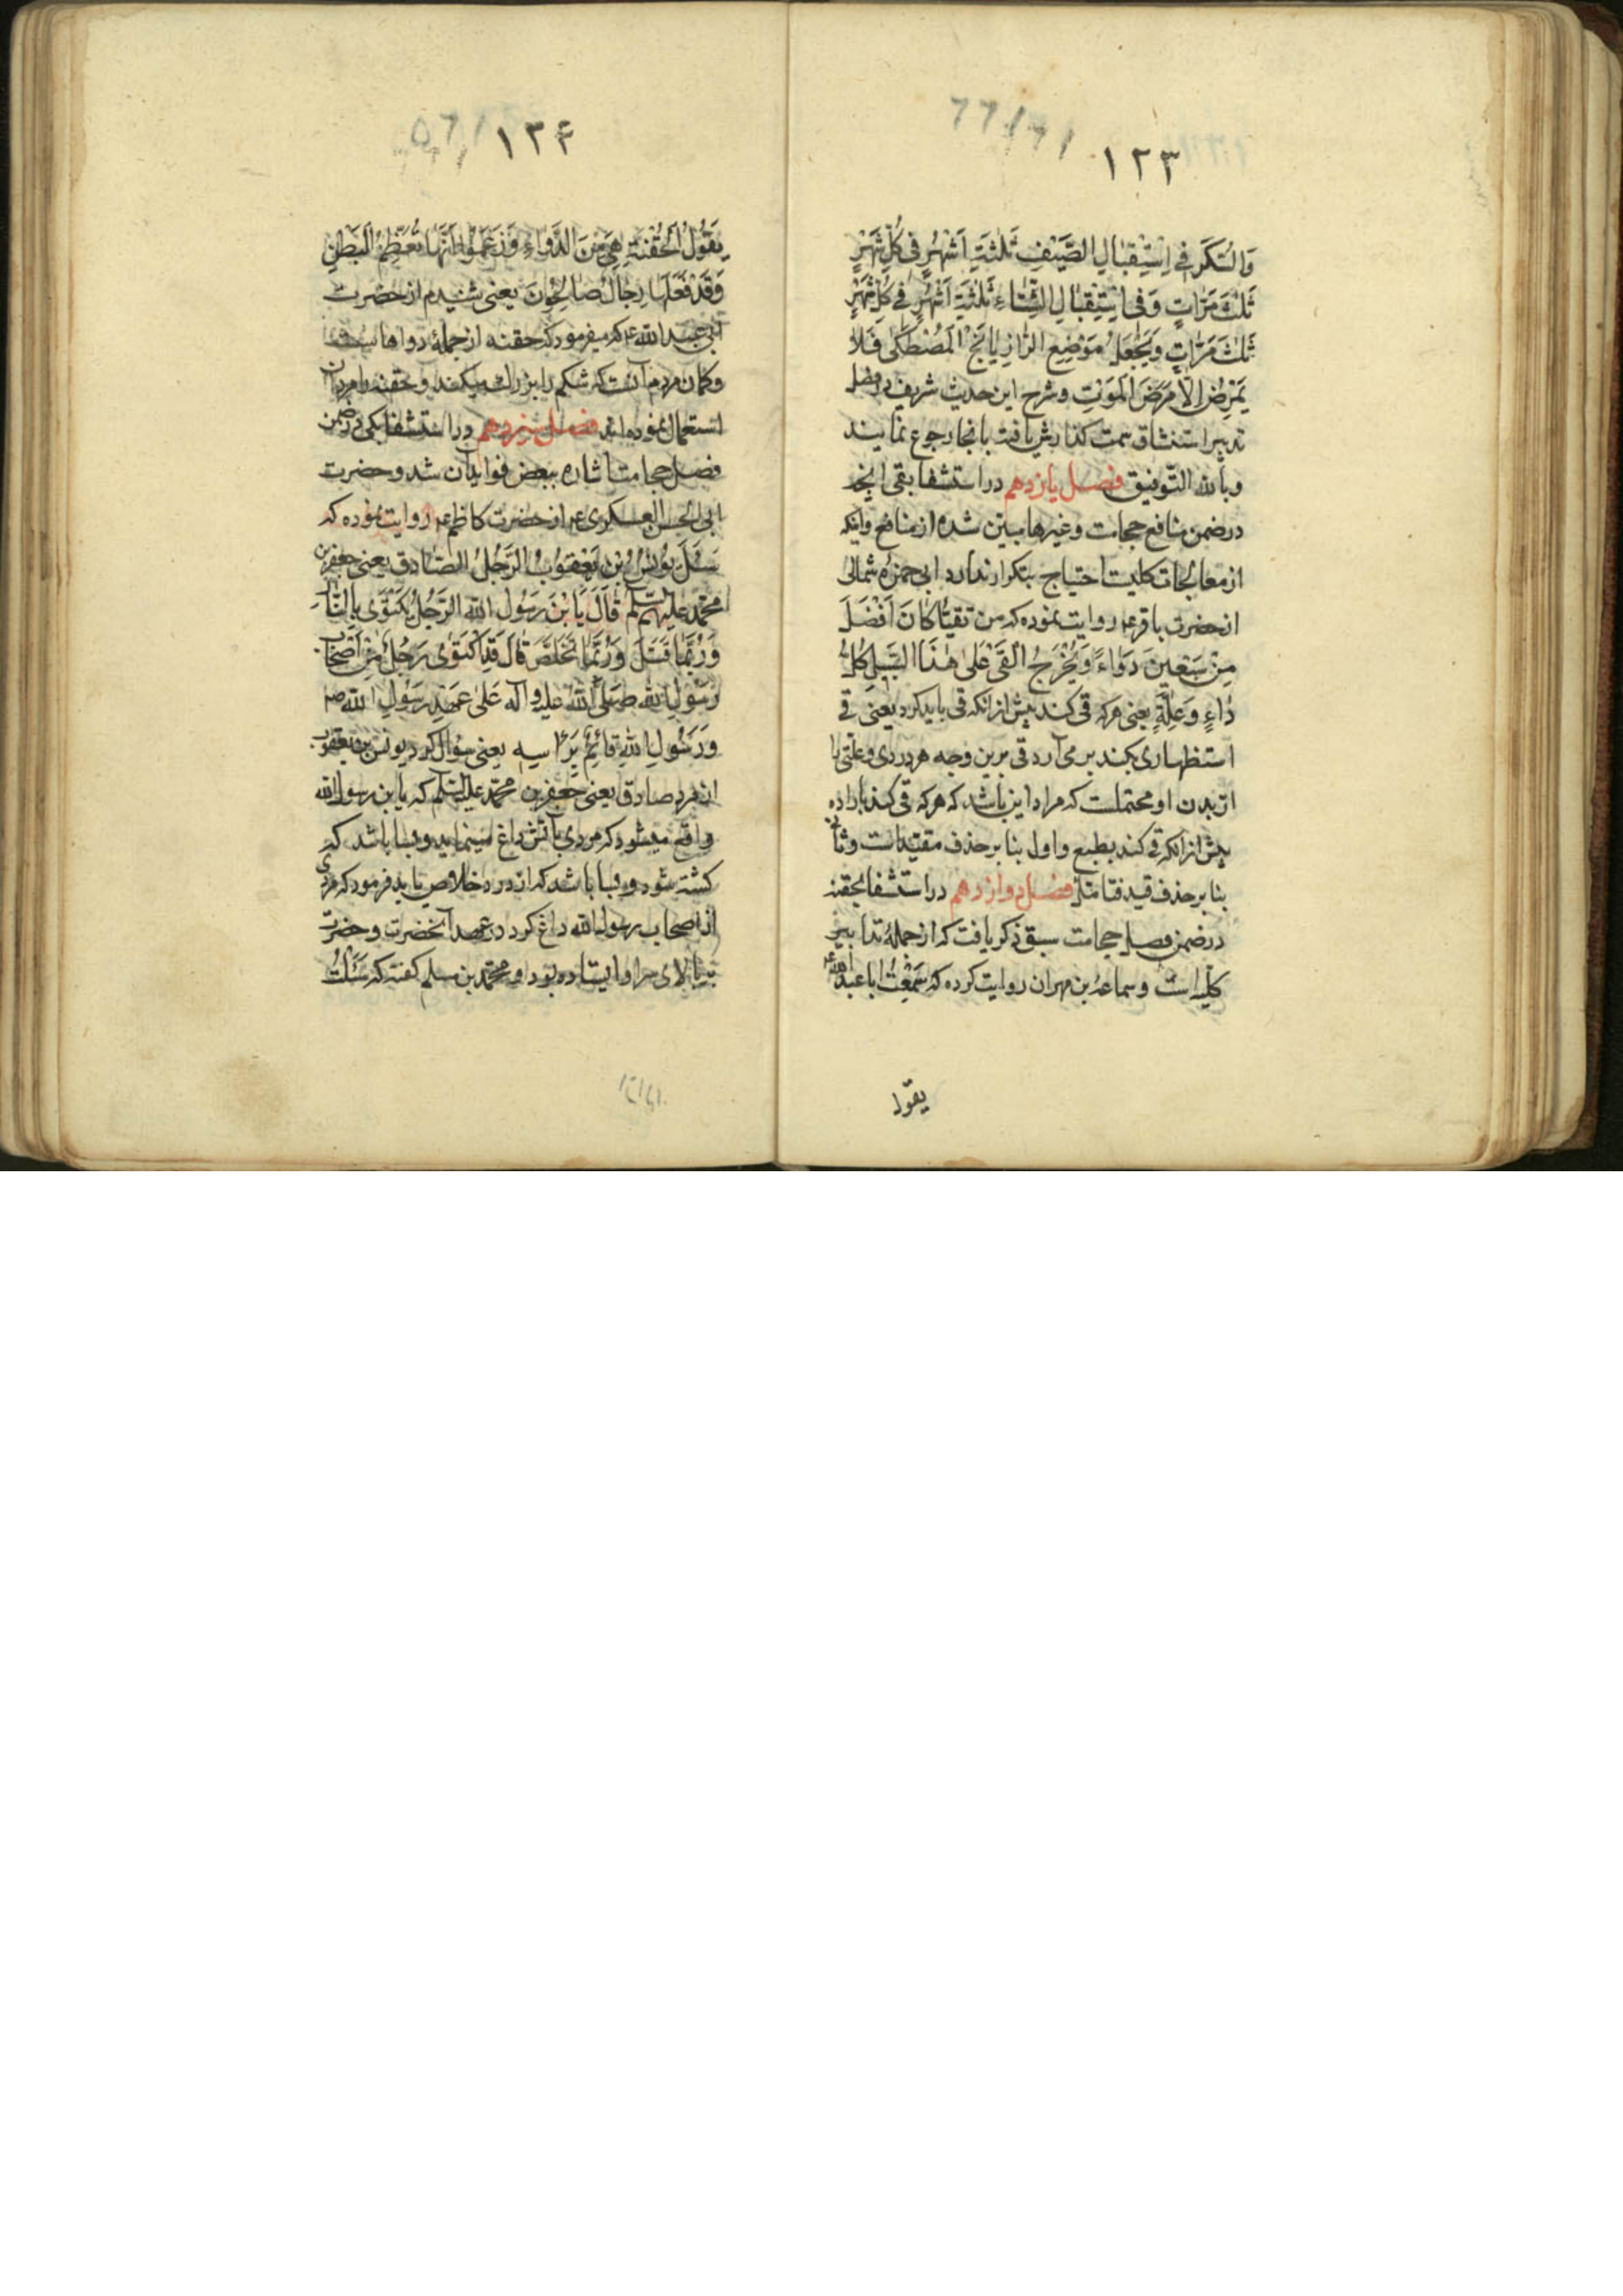 ١٢٣
وَالسُّكَّرَ فِي اِسْتِقْبَالِ الصَّيْفِ ثَلٰثَةَ اَشْهُرٍ فِي كُلِّ شَهْرٍ
ثَلٰثَ مَرّٰاتٍ وَفِي اسْتِقْبَالِ الشِّتٰاءِ ثَلٰثَةَ اَشْهُرٍ فِي كُلِّ شَهْرٍ
ثَلٰثَ مَرّٰاتٍ وَيَجْعَلُ مَوْضِعَ الرّٰازِيٰانَجْ الْمَصْطَكٰى فَلاٰ
يَمْرَضُ اِلّٰا مَرَضَ الْمَوْتِ وشرح این حدیث شریف در فصل
تدبیر استنشاق سمت کذارش یافت بانجا رجوع نمایند
وبالله التوفیق فصل یازدهم در استشفا بقی انچه
در ضمن منافع حجامت وغیرها مبین شده از منافع واینکه
از معالجات کلیست احتیاج بتکرار ندارد ابی حمزه ثمالی
از حضرت باقرع روایت نموده که من تقیّأ كٰانَ اَفْضَلَ
مِنْ سَبْعِينَ دَوٰاءً وَيُخْرِجُ الْقَيْ عَلىٰ هٰذَا السَّبِيلِ كُلَّ
دٰاءٍ وَعِلَّةٍ یعنی هرکه قی کند پیش ازانکه قی باید کرد یعنی قی
استظهاری بکند بر می آرد قی برین وجه هر دردی وعلتی را
از بدن او محتملست که مراد این باشد که هرکه قی کند باراده
پیش ازانکه قی کند بطبع واول بنا بر حذف مقتیدا است وثانی
بنا بر حذف قید فتامل فصل دوازدهم در استشفا بحقنه
در ضمن فصل حجامت سبق ذکر یافت که از جملهٔ تدابیر
کلیه است وسماعة بن مهران روایت کرده که سَمِعْتُ اباعبدالله ع
یقول
١٢۴
يَقُولُ الْحُقْنَةُ هِيَ مِنَ الدَّوٰاءِ وَزَعَمُوا اَنَّهٰا تُعَظِّمُ الْبَطْنَ
وَقَدْ فَعَلَهٰا رِجٰالٌ صٰالِحُونَ یعنی شنیدم از حضرت
ابی عبدالله ع که میفرمود که حقنه از جملهٔ دواهاست
وکمان مردم آنست که شکم را بزرك میکند وحقنه را مردان
استعمال نموده اند فصل سیزدهم در استشفا بکی در ضمن
فصل حجامت اشاره ببعض فواید آن شد وحضرت
ابی الحسن العسکری ع از حضرت کاظم ع روایت نموده که
سَئَلَ يُونُسُ بْنِ يَعْقُوبُ الرَّجُلُ الصّٰادِق یعنی جعفر بن
محمّد علیهم السلم قٰالَ يَا بْنَ رَسُولِ اللهِ الرَّجُلُ يَكْتَوى بِالنّٰارِ
وَرُبَّمٰا قَتَلَ وَرُبَّمٰا تَخَلَّصَ قٰالَ قَدْ اكْتَوىٰ رَجُلٌ مِنْ اَصْحٰابِ
رَسُولِ الله صَلَّى اللهُ علیه وآله عَلىٰ عَهْدِ رَسُولِ اللهِ ص
وَرَسُولِ اللهِ قٰائِمٌ بَرَاْسِهِ یعنی سؤال کرد یونس بن یعقوب
از مرد صادق یعنی جعفر بن محمّد علیه السّلم که یا بن رسول الله
واقع میشود که مردی بآتش داغ مینماید وبسا باشد که
کشته شود وبسا باشد که از درد خلاص یابد فرمود که مردی
از اصحاب رسول الله داغ کرد در عهد آنحضرت وحضرت
ببالای سر او ایستاده بود ومحمّد بن مسلم کفته که سَئَلْتُ